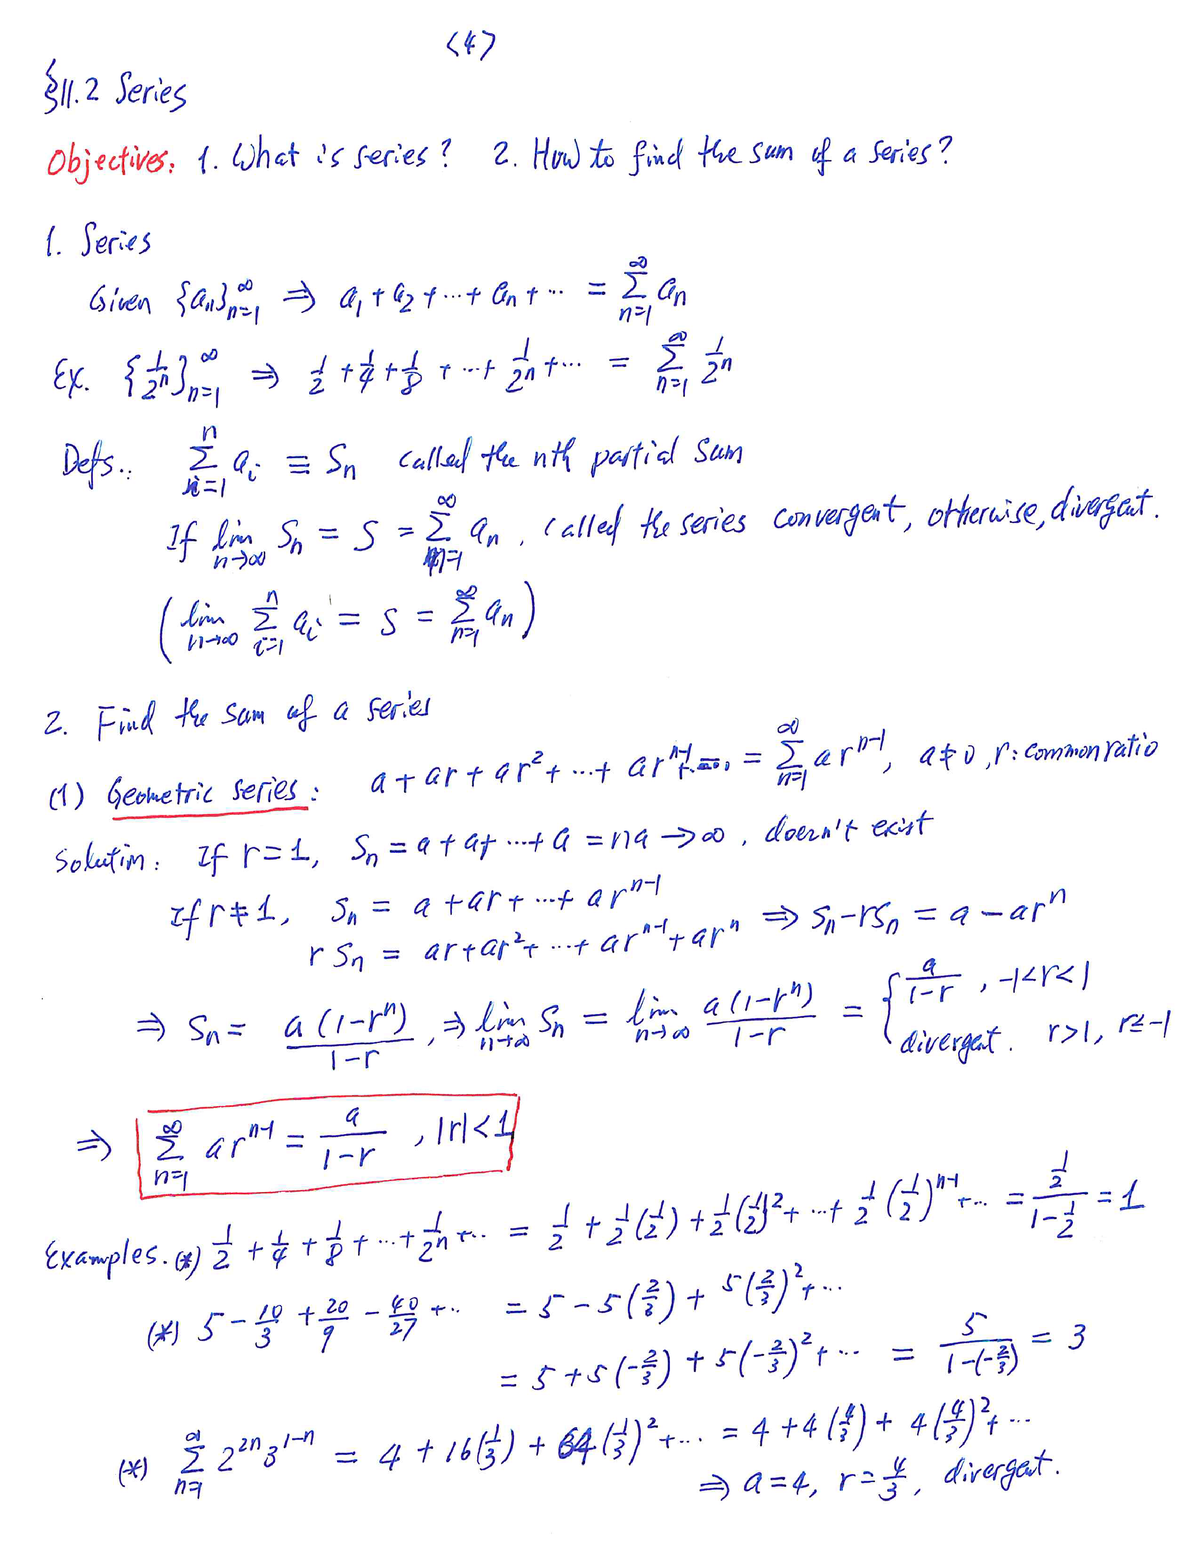 <4>
§11.2 Series
Objectives: 1. What is series? 2. How to find the sum of a series?
1. Series
Given {aₙ}ₙ₌₁^∞ ⇒ a₁ + a₂ + ⋯ + aₙ + ⋯ = ∑ₙ₌₁^∞ aₙ
Ex. {1/2ⁿ}ₙ₌₁^∞ ⇒ 1/2 + 1/4 + 1/8 + ⋯ + 1/2ⁿ + ⋯ = ∑ₙ₌₁^∞ 1/2ⁿ
Defs.: ∑ᵢ₌₁ⁿ aᵢ ≡ Sₙ called the nth partial sum
If lim n→∞ Sₙ = S = ∑ₙ₌₁^∞ aₙ, called the series convergent, otherwise, divergent.
(lim n→∞ ∑ᵢ₌₁ⁿ aᵢ = S = ∑ₙ₌₁^∞ aₙ)
2. Find the sum of a series
(1) Geometric series: a + ar + ar² + ⋯ + arⁿ⁻¹ + ⋯ = ∑ₙ₌₁^∞ arⁿ⁻¹, a ≠ 0, r: common ratio
Solution: If r = 1, Sₙ = a + a + ⋯ + a = na → ∞, doesn't exist
If r ≠ 1, Sₙ = a + ar + ⋯ + arⁿ⁻¹
rSₙ = ar + ar² + ⋯ + arⁿ⁻¹ + arⁿ ⇒ Sₙ - rSₙ = a - arⁿ
⇒ Sₙ = a(1-rⁿ)/(1-r), ⇒ lim n→∞ Sₙ = lim n→∞ a(1-rⁿ)/(1-r) = { a/(1-r), -1<r<1
divergent. r>1, r≤-1
⇒ ∑ₙ₌₁^∞ arⁿ⁻¹ = a/(1-r), |r|<1
Examples. (*) 1/2 + 1/4 + 1/8 + ⋯ + 1/2ⁿ + ⋯ = 1/2 + 1/2(1/2) + 1/2(1/2)² + ⋯ + 1/2(1/2)ⁿ⁻¹ + ⋯ = (1/2)/(1-1/2) = 1
(*) 5 - 10/3 + 20/9 - 40/27 + ⋯ = 5 - 5(2/3) + 5(2/3)² + ⋯
= 5 + 5(-2/3) + 5(-2/3)² + ⋯ = 5/(1-(-2/3)) = 3
(*) ∑ₙ₌₁^∞ 2²ⁿ3¹⁻ⁿ = 4 + 16(1/3) + 64(1/3)² + ⋯ = 4 + 4(4/3) + 4(4/3)² + ⋯
⇒ a = 4, r = 4/3, divergent.